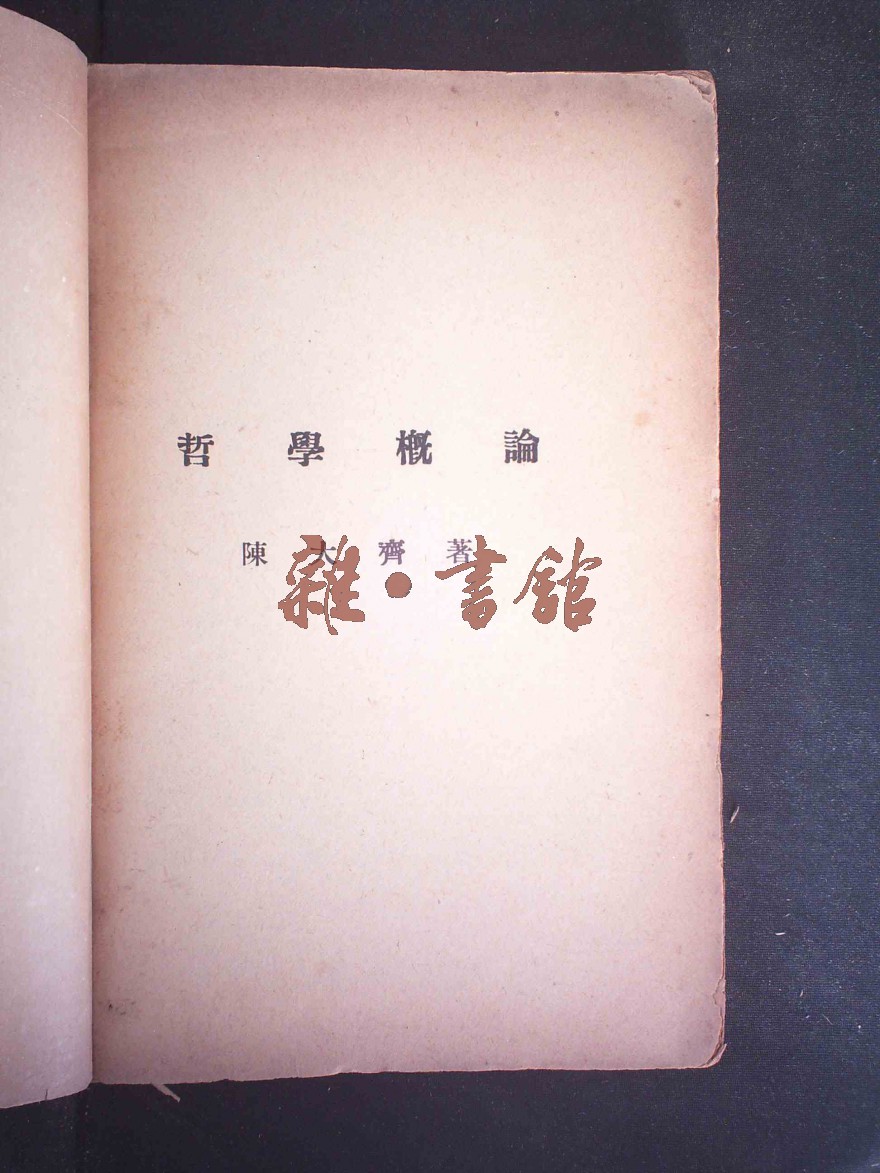 哲學槪論
陳大齊著
雜·書館